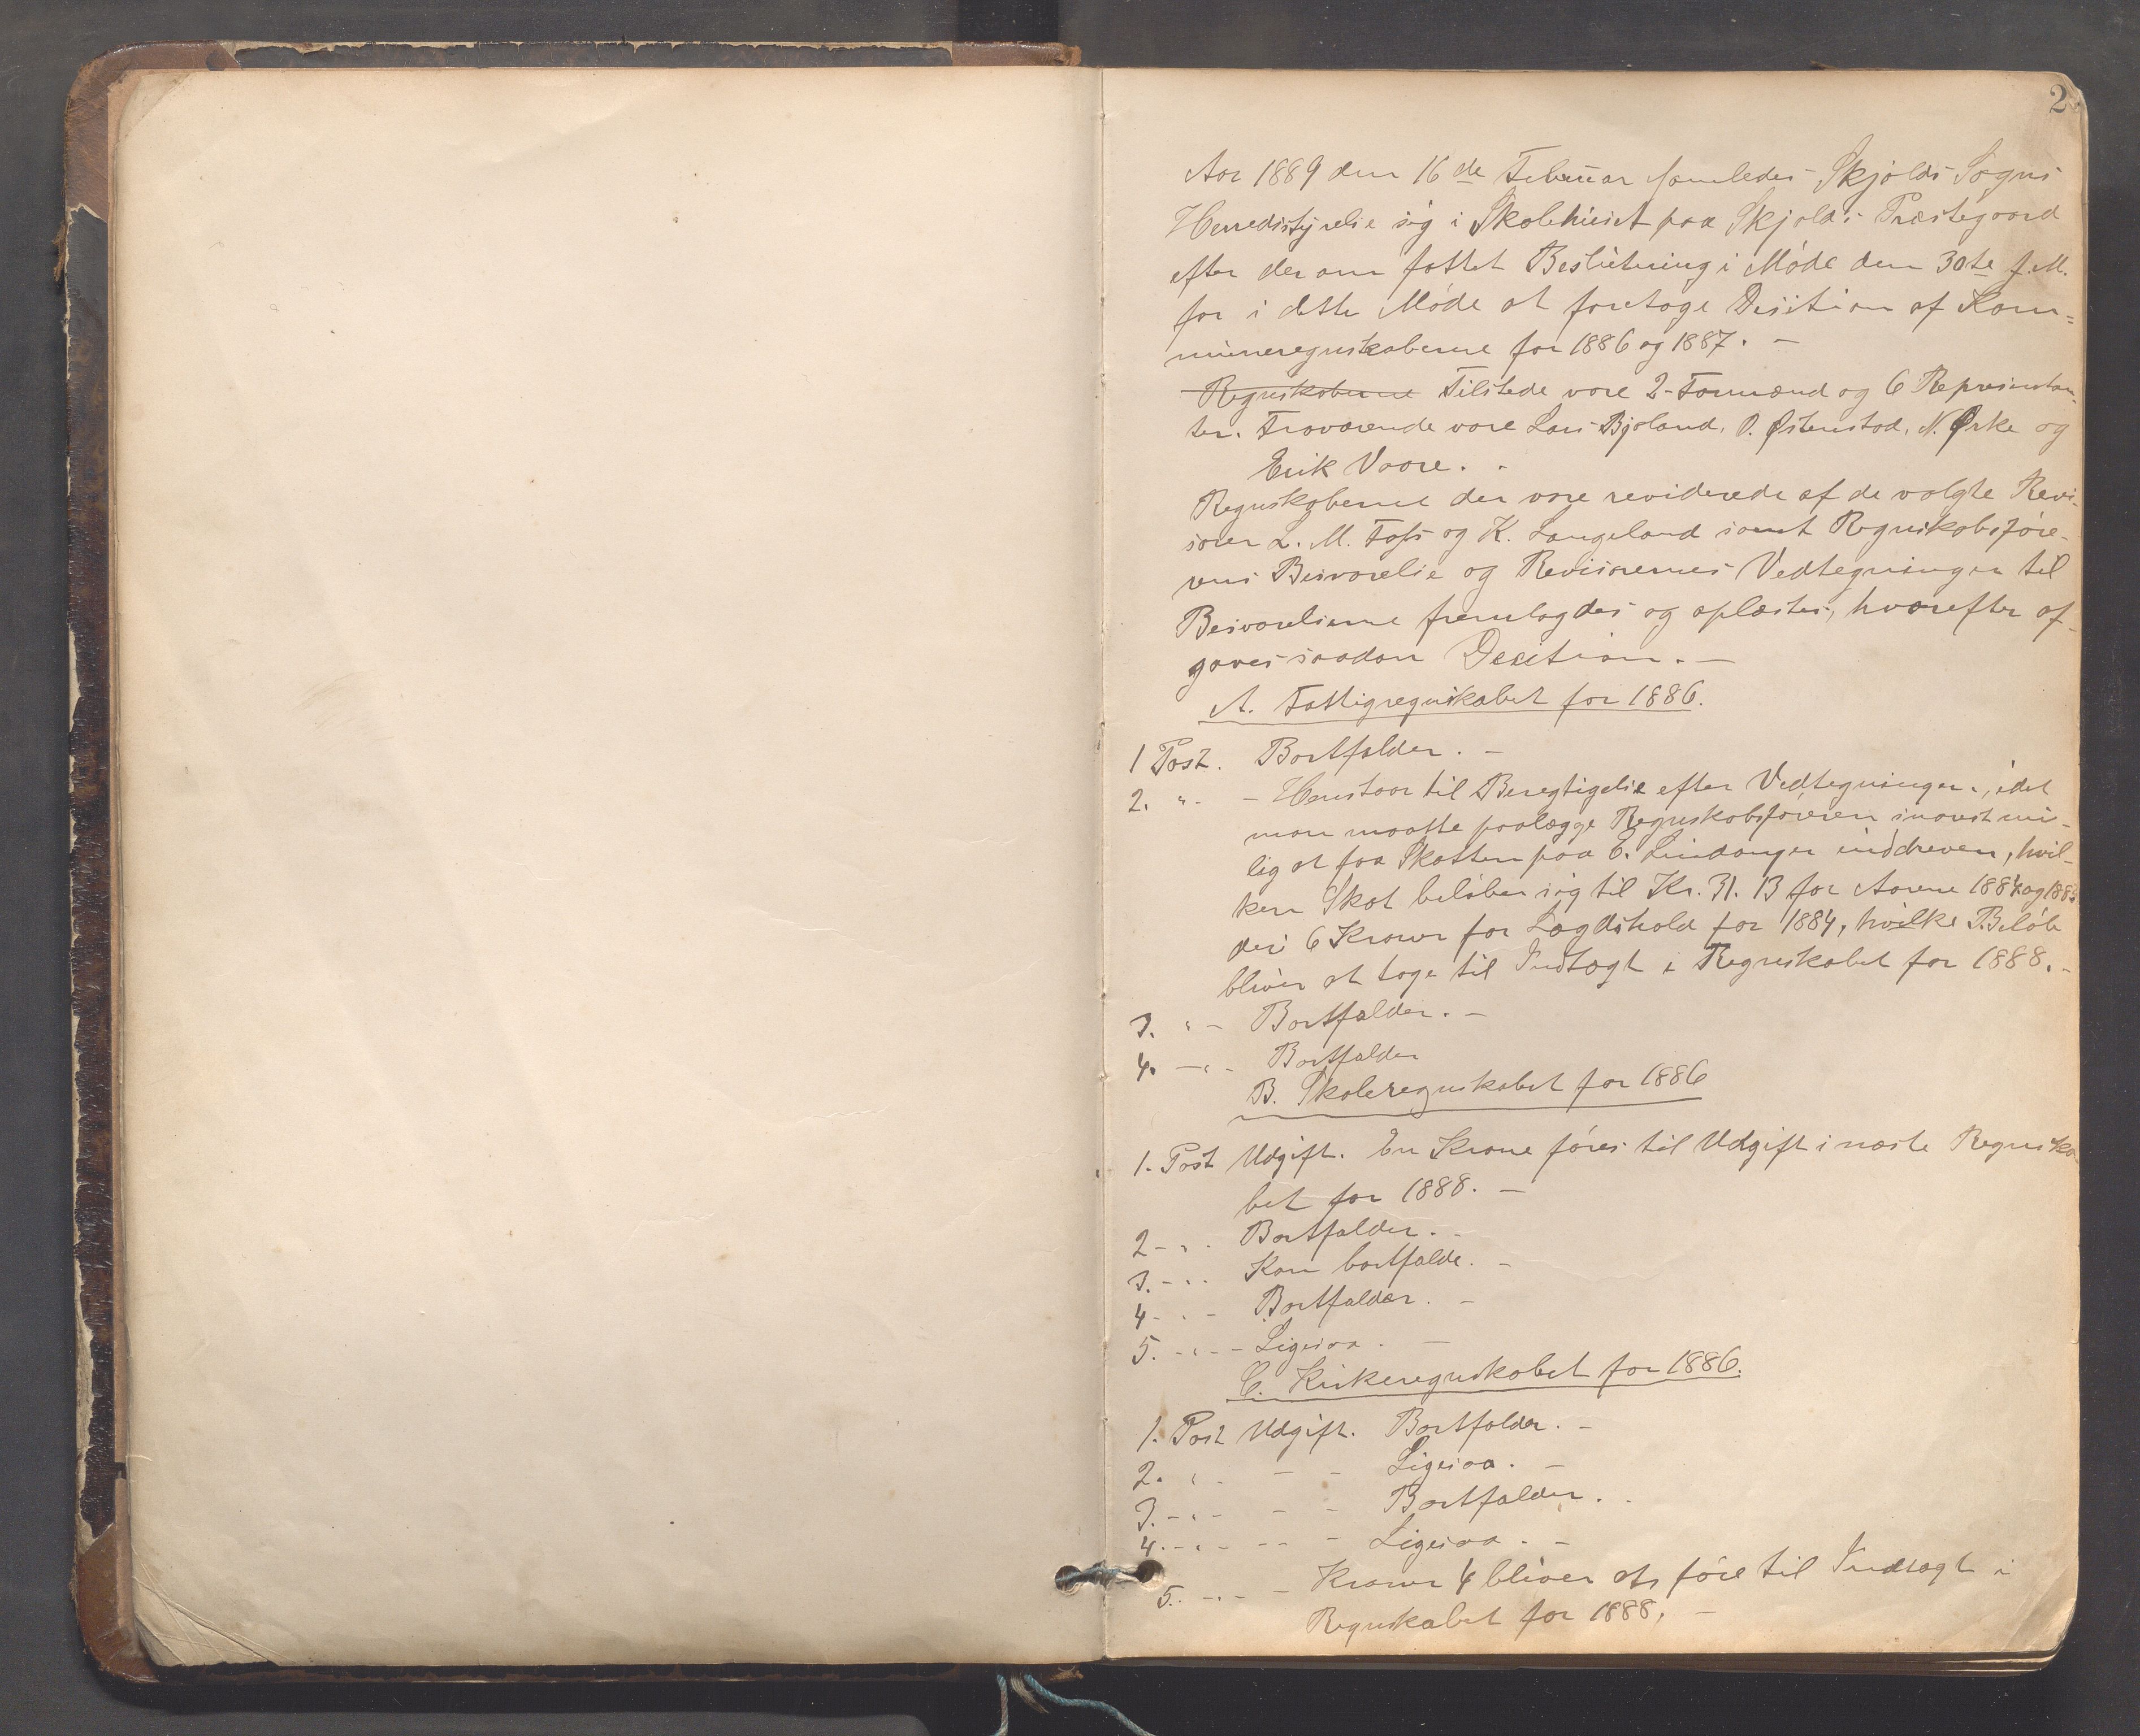 2
Aar 1889 den 16de Februar samledes Skjolds Sogns
Herredsstyrelse sig i Skolehuset paa Skjolds Præstegaard
efter derom fattet Beslutning i Møde den 30te f. M.
for i dette Møde at foretage Desition af Kom=
muneregnskaberne for 1886 og 1887. –
Regnskaberne Tilstede vare 2 Formænd og 6 Representan-
ter. Fraværende vare Lars Bjoland, O. Østenstad, N. Ørke og
Erik Vaare.
Regnskaberne der vare reviderede af de valgte Revi-
sorer L. M. Foss og K. Langeland samt Regnskabsføre-
rens Besvarelse og Revisorernes Vedtegninger til
Besvarelserne fremlagdes og oplæstes, hvorefter af-
gaves saadan Desition. –
A. Fattigregnskabet for 1886.
1 Post. Bortfalder. –
2. " - – Henstaar til Beregtigelse efter Vedtegningen, idet
man maatte paalægge Regnskabsføreren snarest mu-
lig at faa Skatten paa E. Lindanger inddreven, hvil-
ken Skat beløber sig til Kr. 31. 13 for Aarene 1884 og 1885
der 6 Kroner for Lægdshold for 1884, hvilke Beløb
bliver at tage til Indtægt i Regnskabet for 1888. –
3. " – Bortfalder. –
4. – " - Bortfalder
B. Skoleregnskabet for 1886
1. Post Udgift. En Krone føres til Udgift i næste Regnska-
bet for 1888. –
2 – " - Bortfalder. -
3. – " - Kan bortfalde. –
4 - " – Bortfalder. –
5. - " - – Ligesaa. –
C. Kirkeregnskabet for 1886.
1. Post Udgift. Bortfalder. –
2. " - – – Ligesaa. –
3. – " - – – Bortfalder. -
4. – " - – – Ligesaa. –
5. – " - – Kroner 4 bliver at føre til Indtægt i
Regnskabet for 1888. –